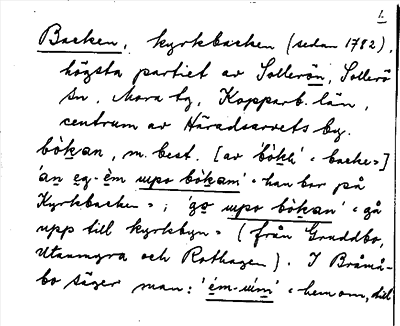 1.
Backen, kyrkbacken (sedan 1782),
högsta partiet av Sollerön, Sollerö
sn, Mora tg, Kopparb. län,
centrum av Häradsarvets by.
bòkan, m. best. [av 'bòkk' "backe"]
'an eg-èm uppo bòkam' "han bor på
Kyrkbacken"; 'go uppo bòkan' "gå
upp till kyrkbyn" (från Gruddbo,
Utanmyra och Rothagen). I Bråmå-
bo säger man: 'ém-uím' "hem om, till